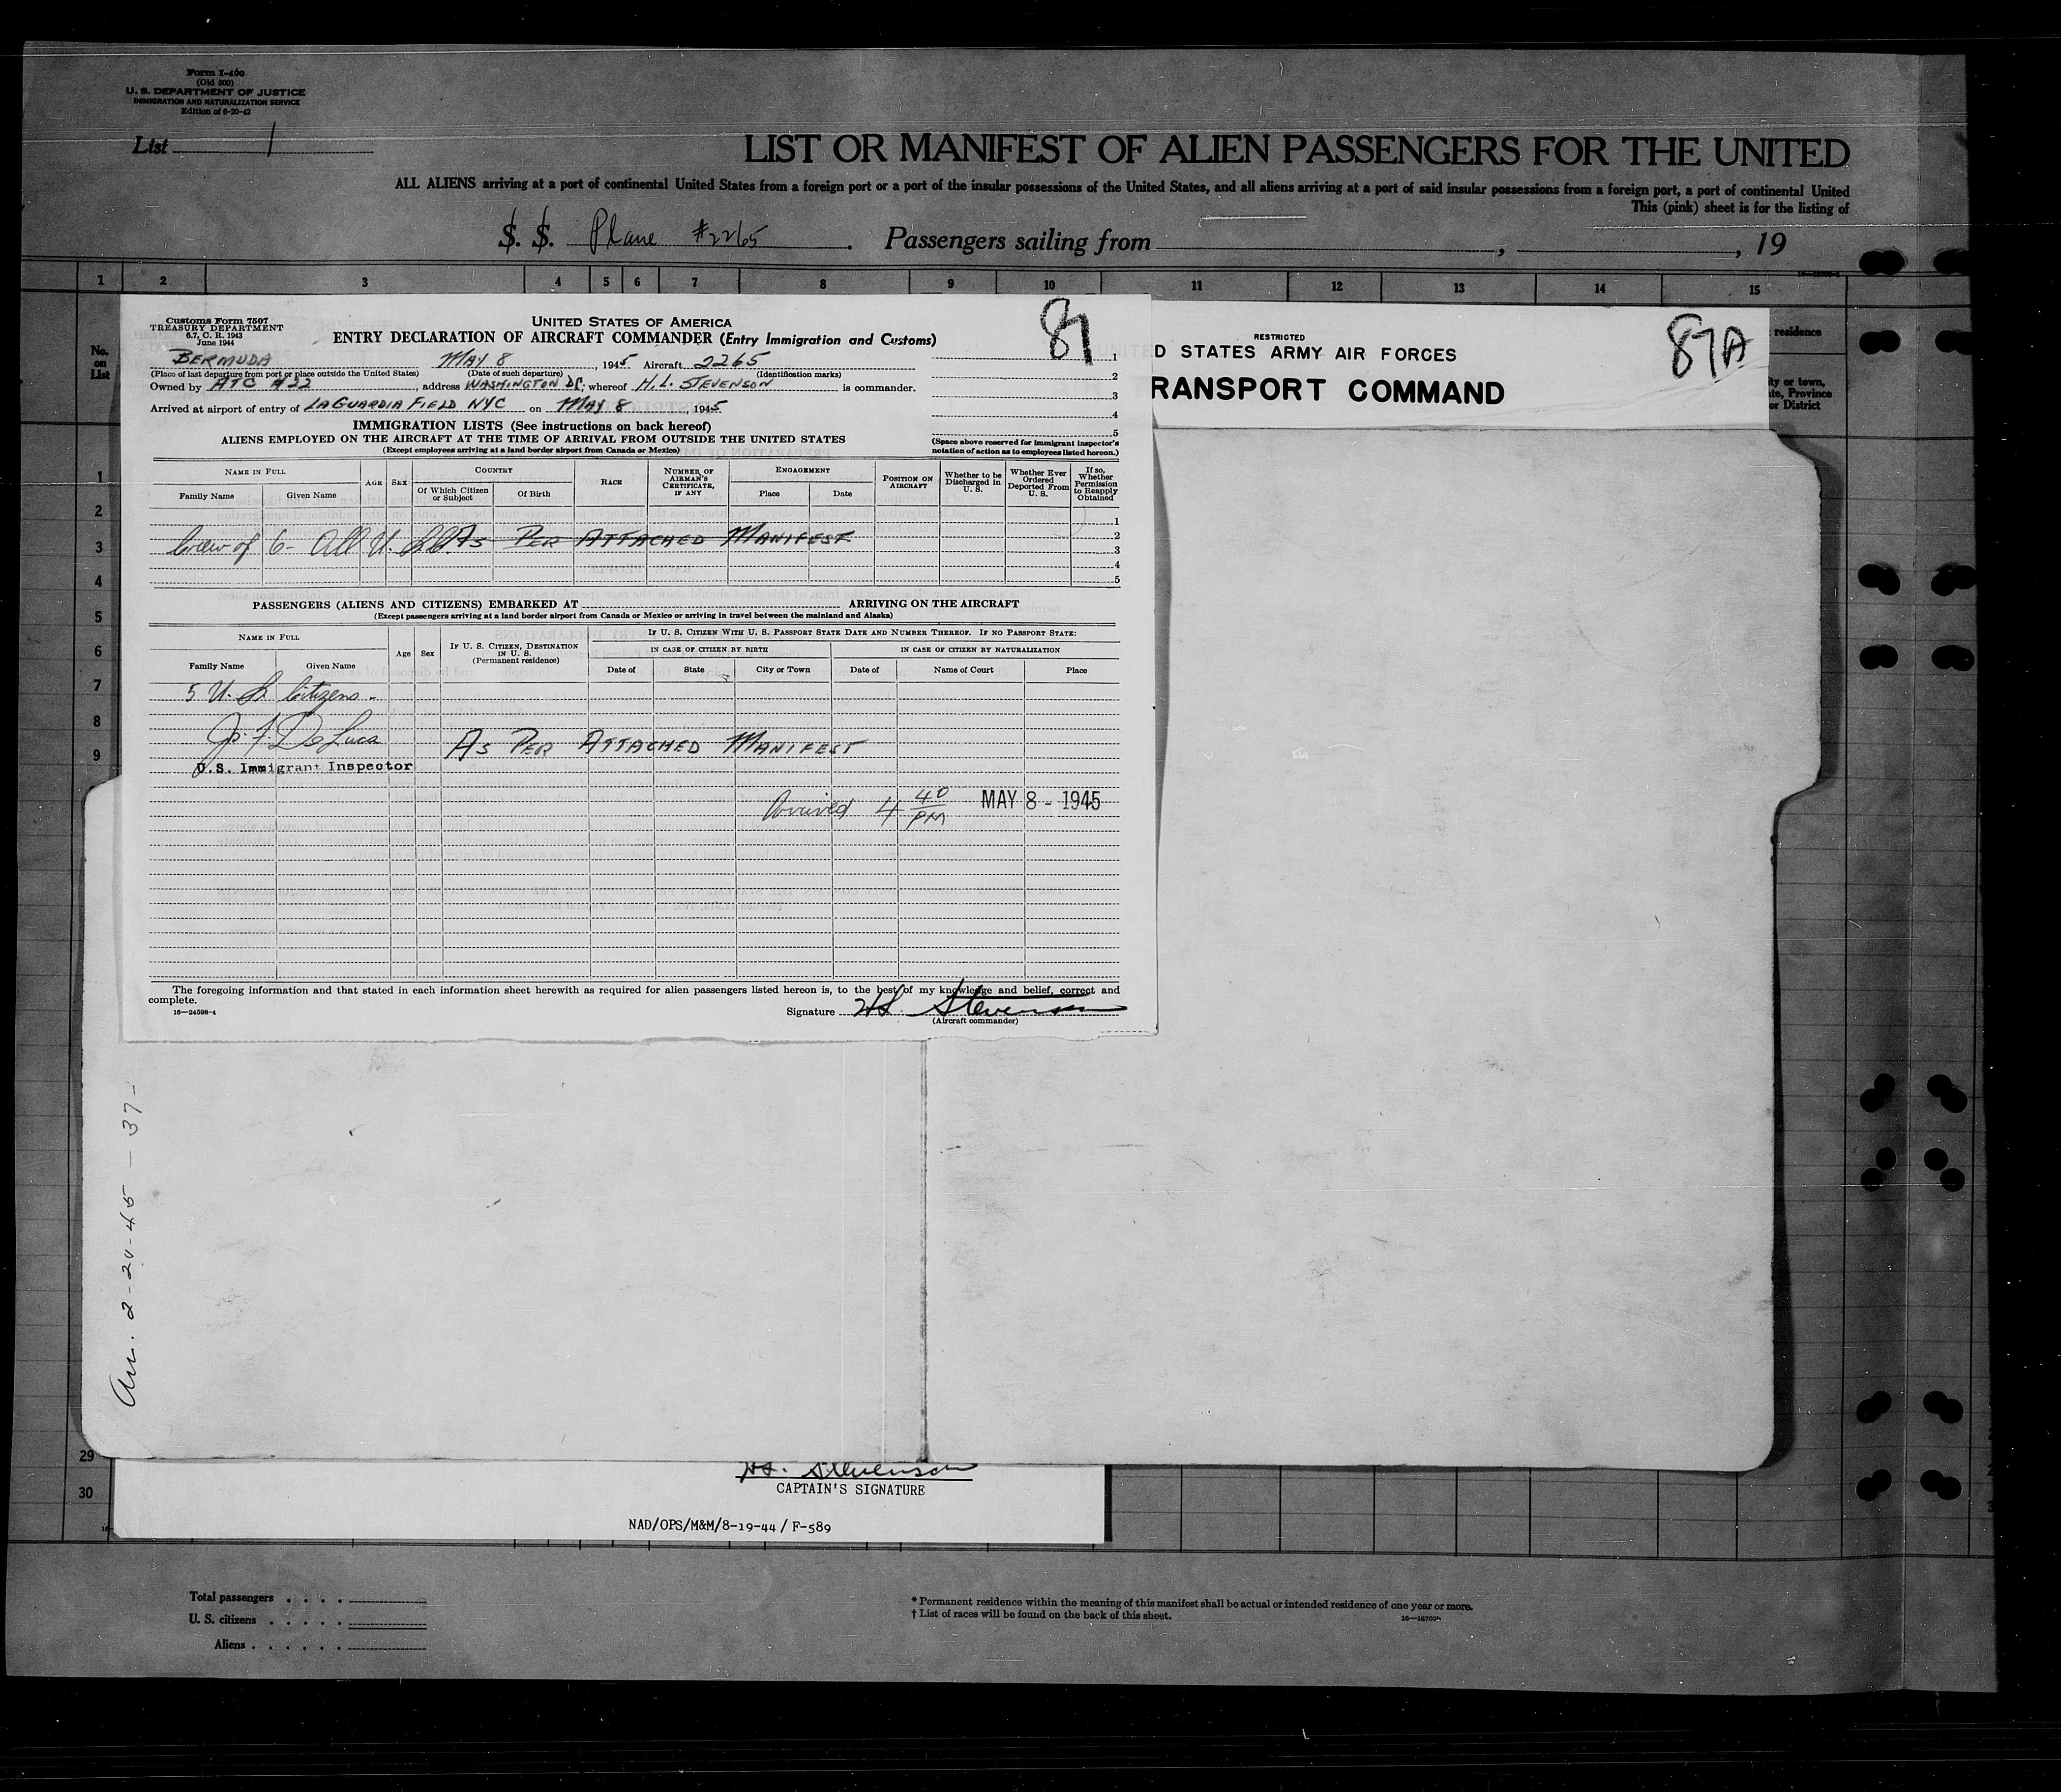 Form I-400
(Old 500)
U. S. DEPARTMENT OF JUSTICE
IMMIGRATION AND NATURALIZATION SERVICE
Edition of 6-20-42
List 1
LIST OR MANIFEST OF ALIEN PASSENGERS FOR THE UNITED
ALL ALIENS arriving at a port of continental United States from a foreign port or a port of the insular possessions of the United States, and all aliens arriving at a port of said insular possessions from a foreign port, a port of continental United
This (pink) sheet is for the listing of
S. S. Plane #2265. Passengers sailing from , , 19
1 2 3 4 5 6 7 8 9 10 11 12 13 14 15
No. on List
residence
ty or town,
te, Province
or District
Customs Form 7507
TREASURY DEPARTMENT
6.7, C. R. 1943
June 1944
UNITED STATES OF AMERICA
ENTRY DECLARATION OF AIRCRAFT COMMANDER (Entry Immigration and Customs)
87
BERMUDA MAY 8, 1945 Aircraft 2265
(Place of last departure from port or place outside the United States) (Date of such departure) (Identification marks)
Owned by ATC #22, address WASHINGTON DC; whereof H. L. STEVENSON is commander.
Arrived at airport of entry of LAGUARDIA FIELD NYC on MAY 8, 1945
1
2
3
4
5
(Space above reserved for immigrant inspector's notation of action as to employees listed hereon.)
IMMIGRATION LISTS (See instructions on back hereof)
ALIENS EMPLOYED ON THE AIRCRAFT AT THE TIME OF ARRIVAL FROM OUTSIDE THE UNITED STATES
(Except employees arriving at a land border airport from Canada or Mexico)
NAME IN FULL AGE SEX COUNTRY RACE NUMBER OF AIRMAN'S CERTIFICATE, IF ANY ENGAGEMENT POSITION ON AIRCRAFT Whether to be Discharged in U. S. Whether Ever Ordered Deported From U. S. If so, Whether Permission to Reapply Obtained
Family Name Given Name Of Which Citizen or Subject Of Birth Place Date
1
2
3
4
5
Crew of 6- All U. S. AS PER ATTACHED MANIFEST
PASSENGERS (ALIENS AND CITIZENS) EMBARKED AT ARRIVING ON THE AIRCRAFT
(Except passengers arriving at a land border airport from Canada or Mexico or arriving in travel between the mainland and Alaska)
NAME IN FULL Age Sex IF U. S. CITIZEN, DESTINATION IN U. S. (Permanent residence) IF U. S. CITIZEN WITH U. S. PASSPORT STATE DATE AND NUMBER THEREOF. IF NO PASSPORT STATE:
IN CASE OF CITIZEN BY BIRTH IN CASE OF CITIZEN BY NATURALIZATION
Family Name Given Name Date of State City or Town Date of Name of Court Place
5 U. S. Citizens -
J. F. De Luca
U.S. Immigrant Inspector
AS PER ATTACHED MANIFEST
Arrived 4 40 PM MAY 8 - 1945
The foregoing information and that stated in each information sheet herewith as required for alien passengers listed hereon is, to the best of my knowledge and belief, correct and
complete.
16—24598-4
Signature H L Stevenson
(Aircraft commander)
RESTRICTED
87A
D STATES ARMY AIR FORCES
RANSPORT COMMAND
1
2
3
4
5
6
7
8
9
29
30
Arr. 2-20-45 - 37-
H L. Stevenson
CAPTAIN'S SIGNATURE
NAD/OPS/M&M/8-19-44/ F-589
Total passengers
U. S. citizens
Aliens
* Permanent residence within the meaning of this manifest shall be actual or intended residence of one year or more.
† List of races will be found on the back of this sheet.